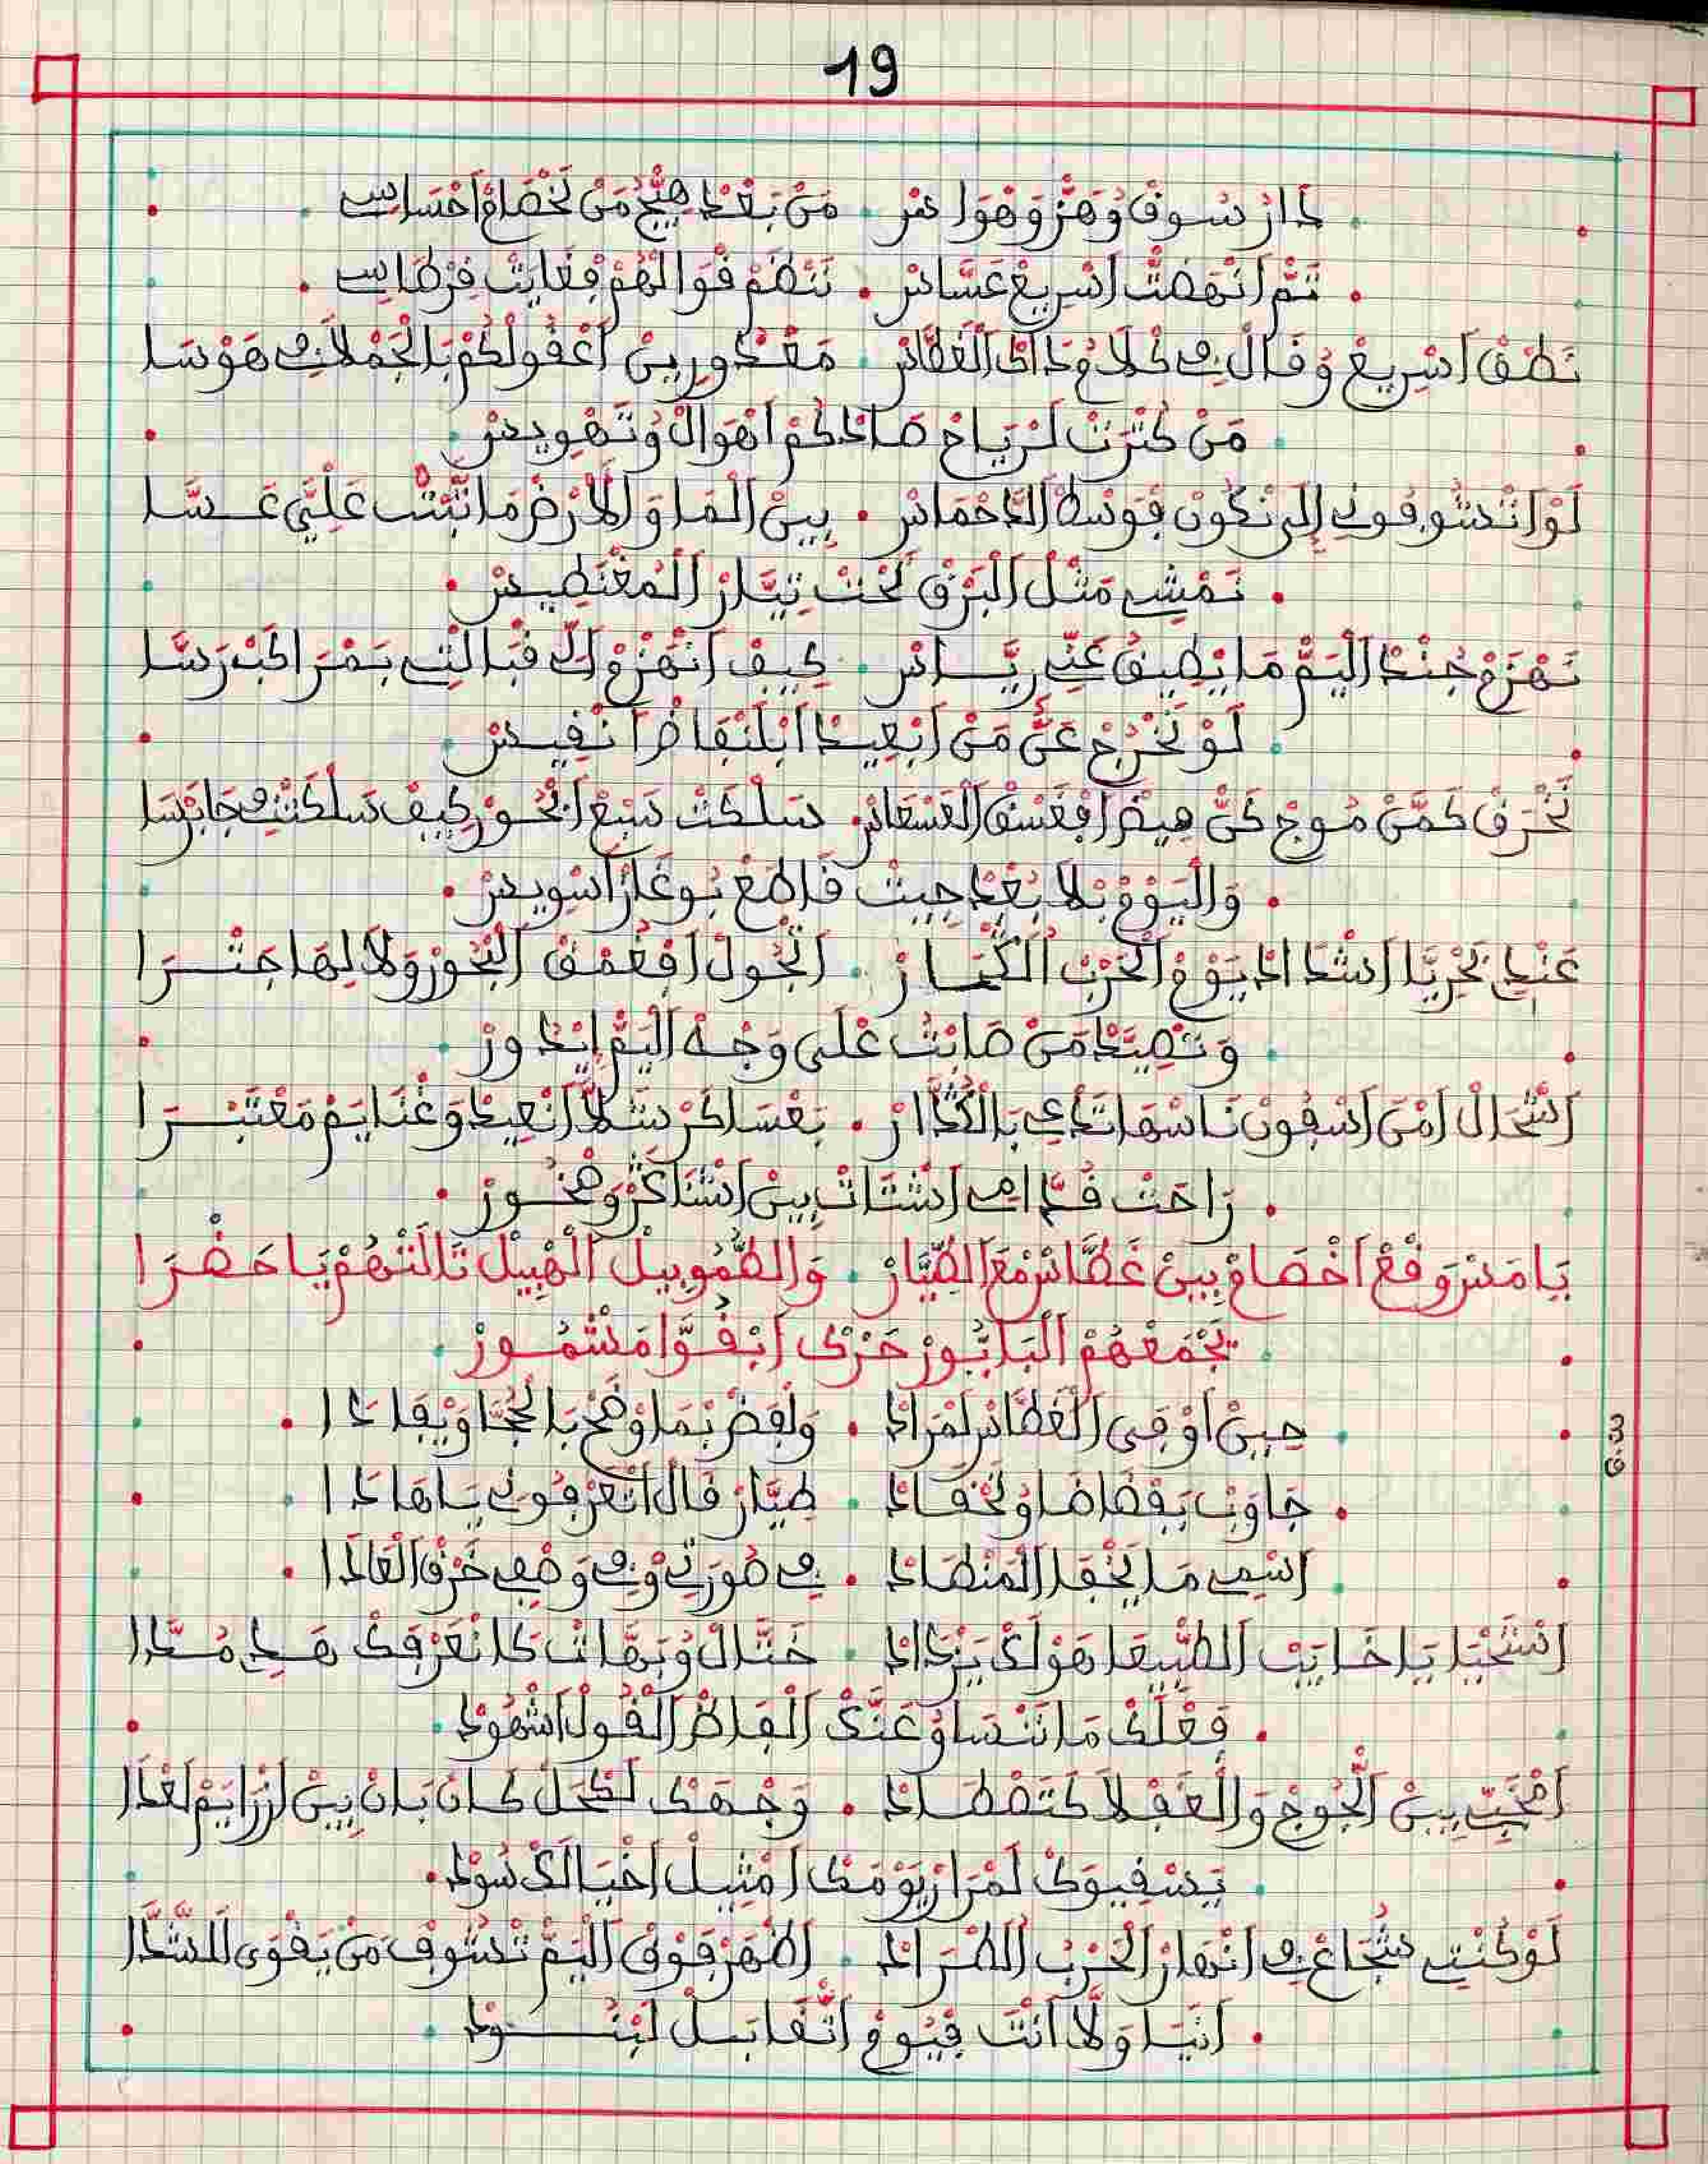 19
دَارْ سُوقْ وُهَزّْ وَهْوَاسْ . مَنْ بَعْدْ هَيَّجْ مَنْ لَخْصَامْ احْسَاسِي
تَمّْ انْهَضْتْ اسْرِيعْ عَسَّاسْ . نَنْظَمْ قْوَالْهُمْ فِغَايَتْ قِرْطَاسِي
نْطَقْ اسْرِيعْ وُقَالْ فِي كْلَامُ دَاكْ الْغَطَّاسْ . مَغْدُورِينْ اعْقُولْكُمْ بَالْجَمْلَا فِي هَوْسَا
مَنْ كَثْرَتْ لَرْيَاحْ صَادْكُمْ اهْوَالْ وُتَهْوِيسْ
لَوْ اتْشُوفُونِي إلَى نْكُونْ فَوْسْطْ الدَّحْمَاسْ . بِينْ الْمَا وَالَارْضْ مَا تْبَتْ عْلِيَّ عَسَّا
نَمْشِي مَثْلْ الْبَرْقْ تَحْتْ تِيَّارْ الْمَغْنَطِيسْ
نَهْزَمْ جُنْدْ الْيَمّْ مَا يْطِيقْ عْنِّي رِيَّاسْ . كِيفْ انْهَزْمُ لَكْ قْبَالْتِي بَمْرَاكَبْ رَسَّا
لَوْ تَخْرُجْ عَنَّكْ مَنْ ابْعِيدْ ابْلَنْفَاضْ انْقِيسْ
نَخْرَقْ كَمَّنْ مُوجْ كَنّْ هِيضْ افْغَسْقْ الْغَسْعَاسْ . سَلْكَتْ سَبْعْ ابْحُورْ كِيفْ سَلْكَتْنِي جَابَرْسَا
وَالْيُومْ بْلَا بُعْدْ جِيتْ قَاطَعْ بُوغَازْ اسْوِيسْ
عَنْدِي بَحْرِيَّا اشْدَادْ يَوْمْ الْحَرْبْ الْكُبَّارْ . اتْجُولْ افْعُمْقْ الْبْحُورْ وَلَا لِهَا جَتْرَا
وَتْصِيَّدْ مَنْ صَابْتْ عْلَى وَجْهْ الْيَمّْ ايْدُورْ
اشْحَالْ امْنْ اسْفُونْ نَاسْهَا تَدَّاعِي بَالْكْدَّارْ . بَعْسَاكَرْ سَلَّا انْعِيدْ وَغْنَايَمْ مَعْتَبْرَا
رَاحْتْ قُدَّامِي اشْتَاتْ بِينْ اشْنَاكَرْ وَصْخُورْ
يَا مَسْ وَقْعْ اخْصَامْ بِينْ غَطَّاسْ مْعَ الطِّيَّارْ . وَالطُّمُوبِيلْ الْهْبِيلْ تَالَتْهُمْ يَا حَضْرَا
يَجْمَعْهُمْ الْبَابُّورْ حَرْكْ ابْقُوَّا مَشْمُورْ
حِينْ اوْفَى الْغَطَّاسْ لَمْرَادْ . وَلْفَضْ بْمَا وْضَحْ بَالْحُجَّا وَيْفَادَا
جَاوَبْ بَفْضَاضَا وُتَحْقَادْ . طِيَّارْ قَالْ اتْعَرْفُونِي يَا هَادَا
اسْمِي مَا يَخْفَا الْمَنْطَادْ . فِي صُورَتِي وْفِي وَصْفِي خَرْقْ الْعَادَا
اسْتَحْيَا يَا خَايَبْ الطِّبِيعَا هَوْلَكْ يَزْدَادْ . خَتَّالْ وُبَهَّاتْ كَا نْعَرْفَكْ هَدِي مُدَّا
فَعْلَكْ مَا نَنْسَاهْ عَنَّكْ الْفَاظْ الْقُولْ اشْهُودْ
امْخَبِّي بِينْ الْجُوجْ وَالْغَفْلَا كَتَصْطَادْ . وَجْهَكْ لَكْحَلْ كَانْ بَانْ بِينْ ارْزَايَمْ لَعْدَا
يَسْقِيوَكْ لَمْرَارْ يَوْمَكْ امْثِيلْ اخْيَالَكْ سُودْ
لَوْ كُنْتِي شُجَاعْ فِي انْهَارْ الْحَرْبْ الطَّرَادْ . اظْهَرْ فَوْقْ الْيَمّْ تْشُوفْ مَنْ يَقْوَى لَلشَّدَّا
انْيَا وَلَّا انْتَ فِيُومْ اتْقَابَلْ لَبْنُودْ